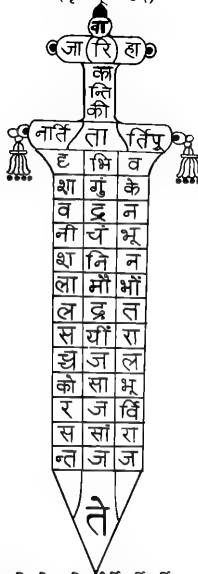 वा
जा रि हा
का
न्ति
की
नार्ति ता र्तिपू
दृ भि व
शा गुं के
व द्र न
नी चं भू
श नि न
ला मौ भौं
ल द्र त
स यीं रा
च्च ज ल
को सा भू
र ज र्वि
स सां रा
न्त ज ज
ते